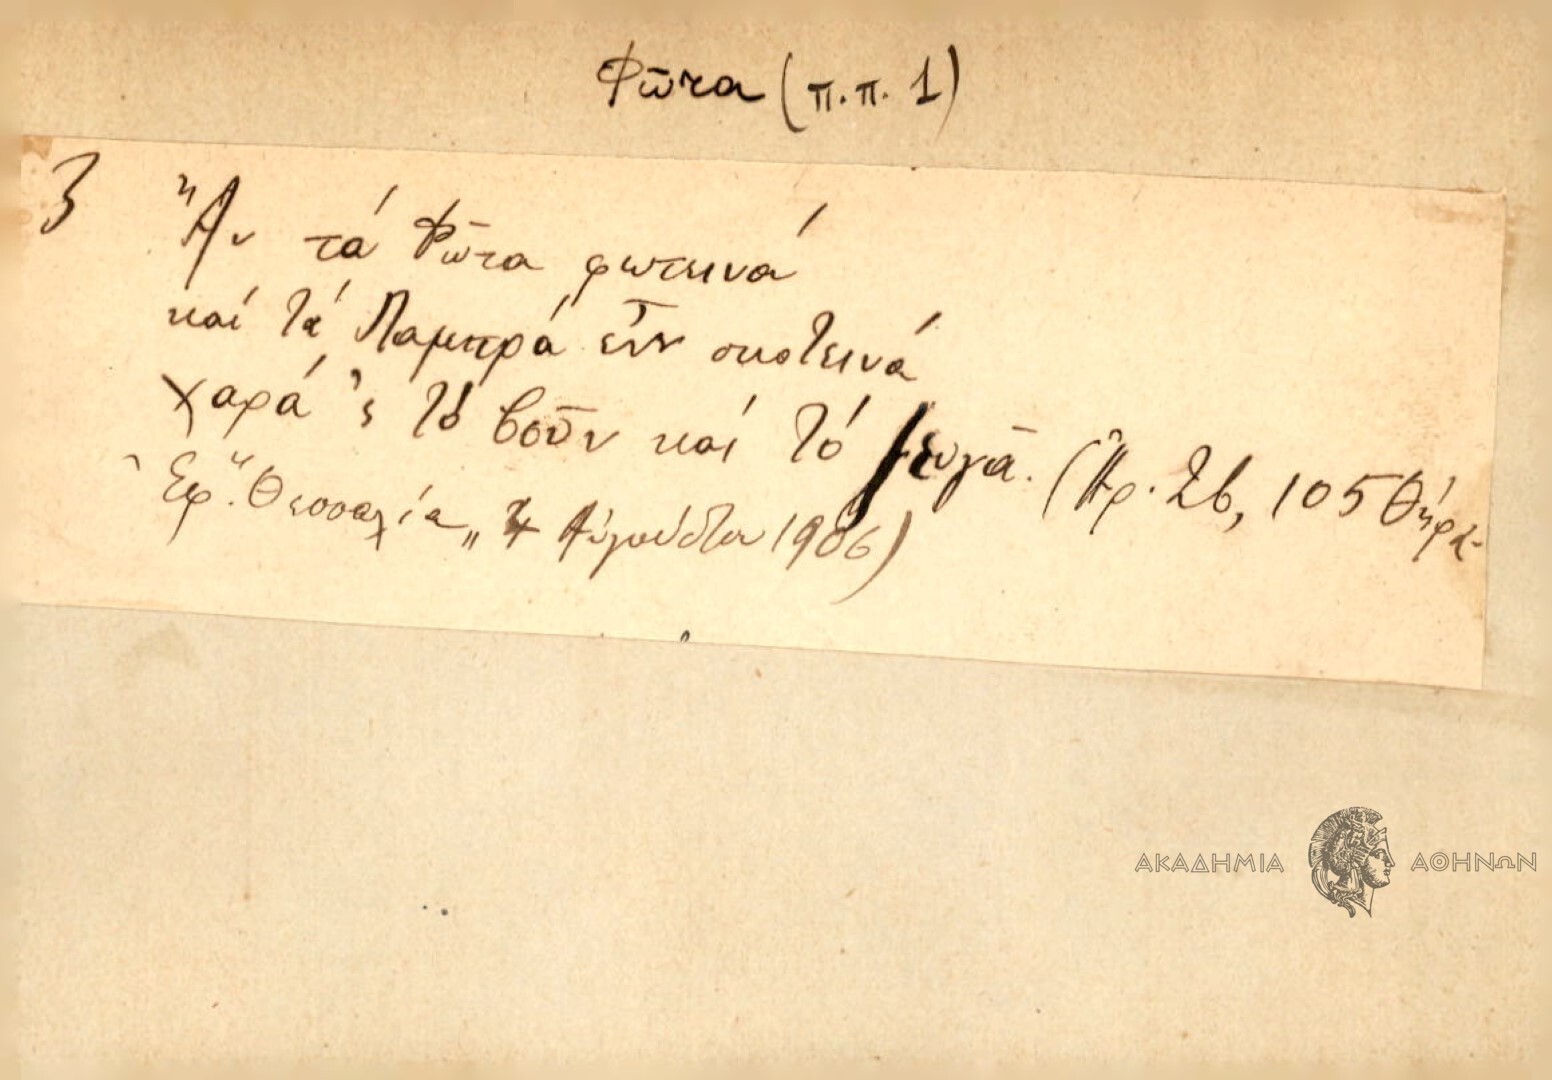 Φῶτα (π.π. 1)
3 Ἂν τά Φῶτα φωτεινά
καί τά Λαμπρά εἶν σκοτεινά
χαρά 'ς τό βοῦν καί τό ζευγᾶ. (Ἀρ. 26, 105 Θήρα-
Ἐφ. "Θεσσαλία„ 4 Αὐγούστου 1906)
ΑΚΑΔΗΜΙΑ ΑΘΗΝΩΝ